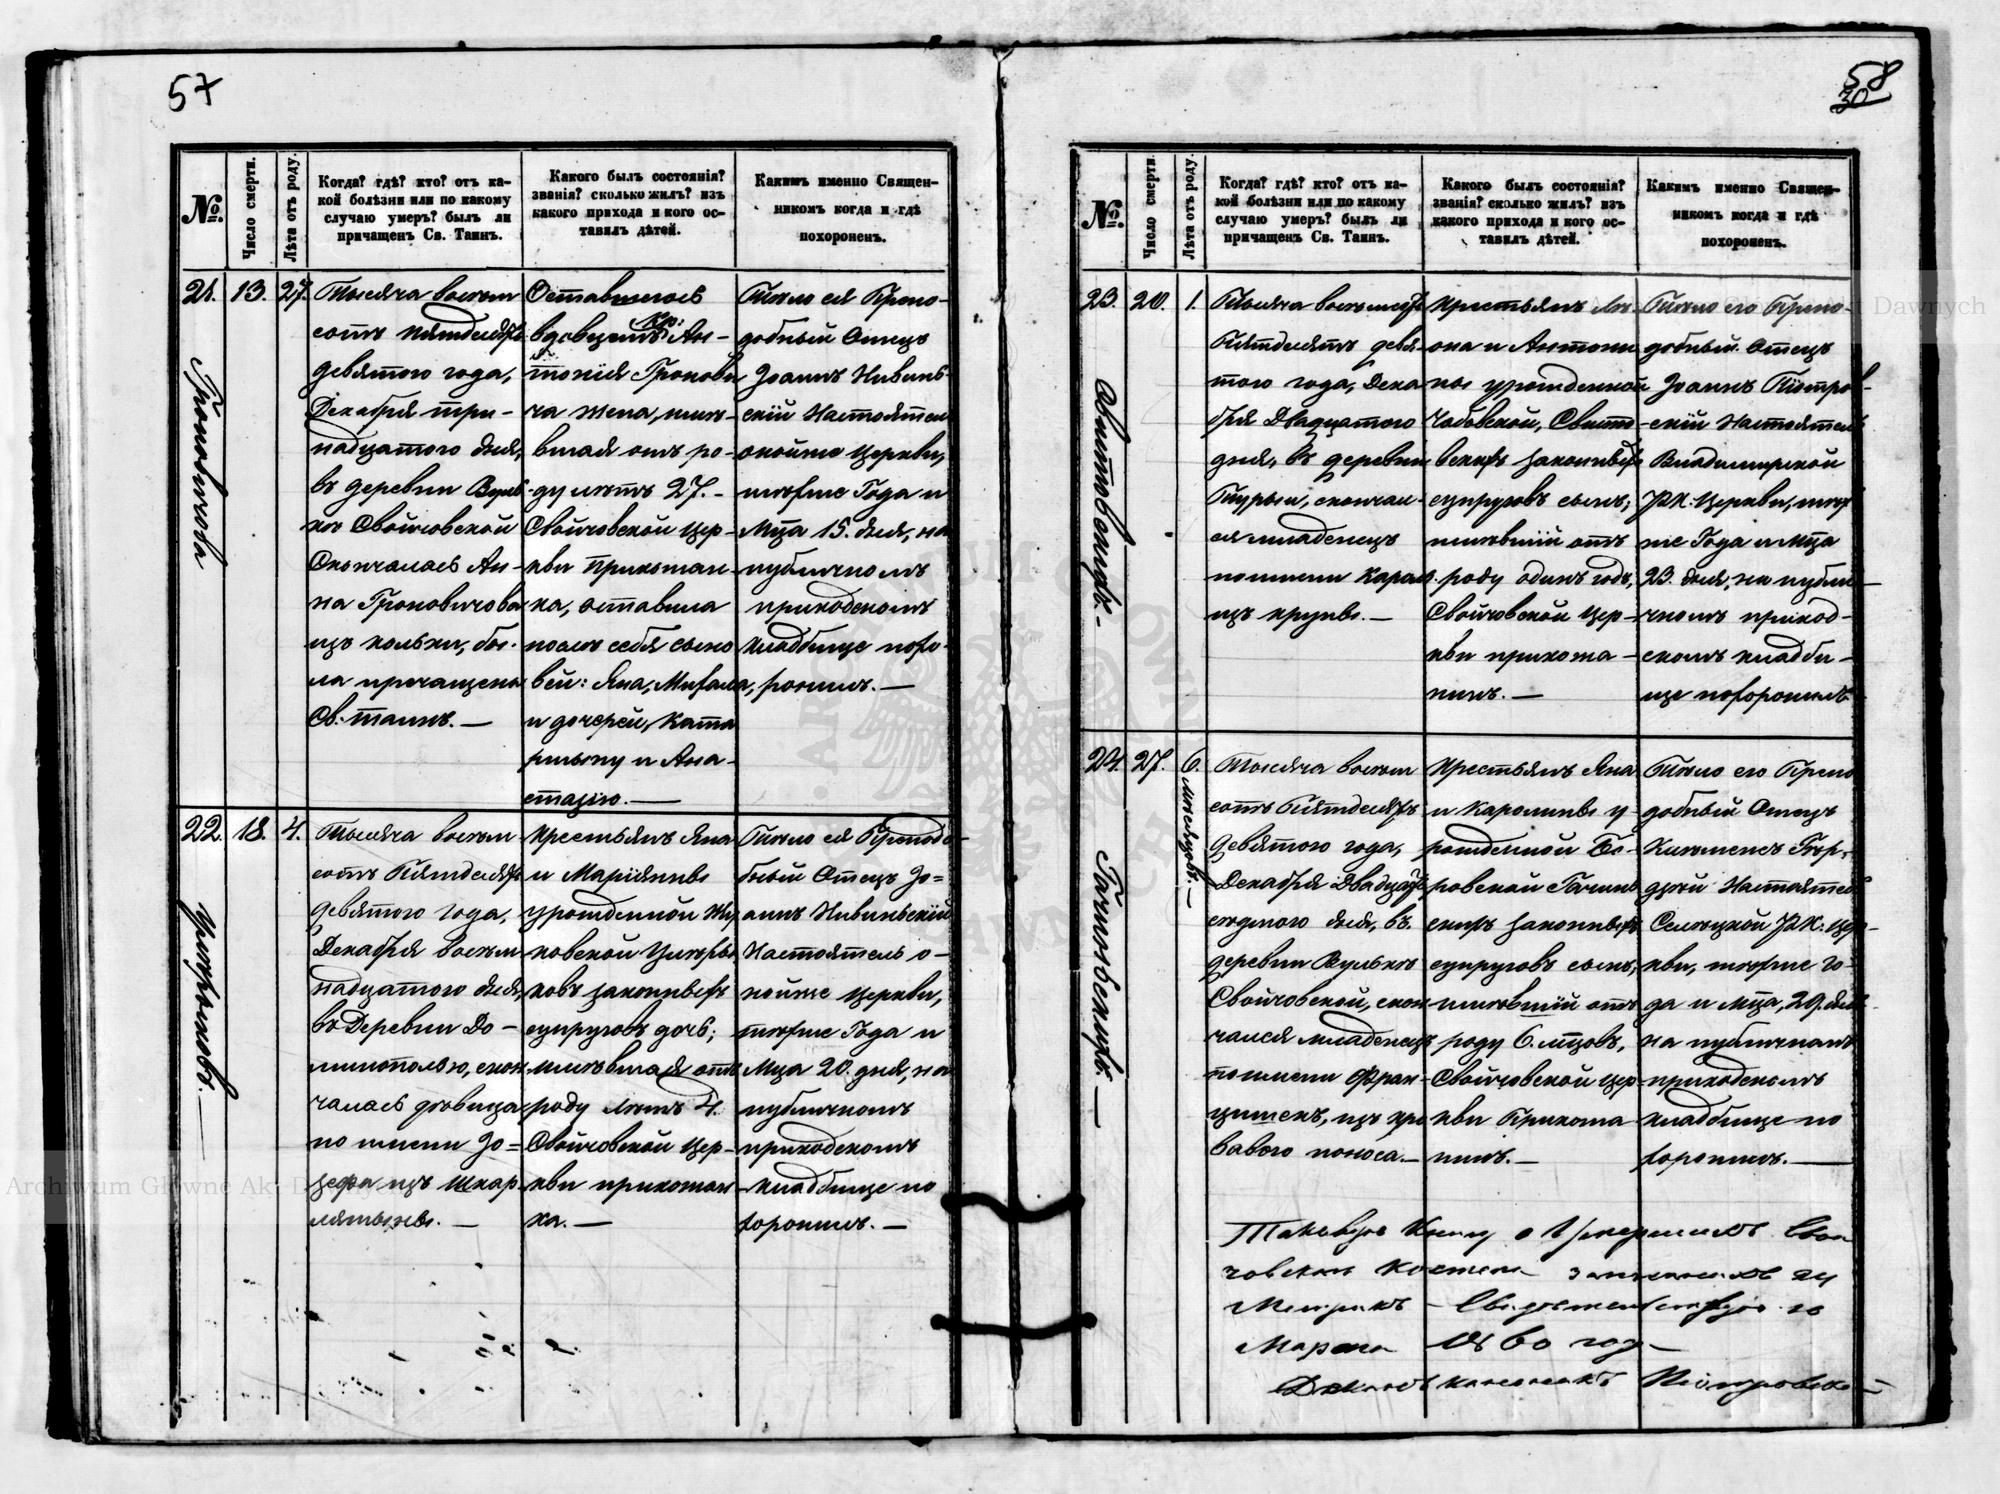 57
№.
Число смерти.
Лѣта отъ роду.
Когда? гдѣ? кто? отъ ка-
кой болѣзни или по какому
случаю умеръ? былъ ли
причащенъ Св. Таинъ.
Какого былъ состоянія?
званія? сколько жилъ? изъ
какого прихода и кого ос-
тавилъ дѣтей.
Какимъ именно Священ-
никомъ когда и гдѣ
похороненъ.
21.
13.
27.
Гроновичова
Тысяча восемь
сотъ пятдесятъ
девятого года,
Декабря три-
надцатого дня,
въ деревни Вуль
ки Свойчовской
Скончалась Ан-
на Гроновичова
изъ кольки, бы-
ла причащена
Св. таинъ. —
Оставшегось
вдовцемъ кр: Ан-
тонія Гронови
ча жена, жив-
вшая отъ ро-
ду лѣтъ 27. -
Свойчовской Цер-
кви прихожан-
ка, оставила
послѣ себя сыно
вей: Яна, Михала,
и дочерей, Ката
ржыну и Ана-
стазію. —
Тѣло ея Препо-
добный Отецъ
Іоаннъ Нивинь-
скій Настоятель
онойже Церкви,
тогоже Года и
Мца 15. дня, на
публичномъ
приходскомъ
кладбище похо-
ронилъ. —
22.
18.
4.
Тысяча восемь
сотъ Пятдесятъ
девятого года,
Декабря восем
надцатого дня,
въ Деревни До-
минополью, скон
чалась дѣвица
по имени Іо=
зефа изъ шкар
лятыны. —
Крестьянъ Яна
и Маріянны
урожденной Жу
ковской
ковъ законныхъ
супруговъ дочь;
жившая отъ
роду лѣтъ 4.
Свойчовской Цер-
кви прихожан
ка. —
Тѣло ея Преподо-
бный Отецъ Іо=
аннъ Нивиньскій
Настоятель о-
нойже Церкви,
тогоже Года и
Мца 20. дня, на
публичномъ
приходскомъ
кладбище по
хоронилъ. —
58
30
№.
Число смерти.
Лѣта отъ роду.
Когда? гдѣ? кто? отъ ка-
кой болѣзни или по какому
случаю умеръ? былъ ли
причащенъ Св. Таинъ.
Какого былъ состоянія?
званія? сколько жилъ? изъ
какого прихода и кого ос-
тавилъ дѣтей.
Какимъ именно Священ-
никомъ когда и гдѣ
похороненъ.
23.
20.
1.
Тысяча восемьсотъ
Пятдесятъ девя-
того года, Дека
бря Двадцатого
дня, въ деревни
скончал-
ся младенецъ
поимени Карол.
изъ крупы. —
Крестьянъ
она и Антони
ны урожденной
законныхъ
супруговъ сынъ;
жившій отъ
роду одинъ годъ,
Свойчовской Цер-
кви прихожа-
нинъ. —
Тѣло его Препо-
добный Отецъ
Іоаннъ Піотров-
скій Настоятель
Владимирской
РК: Церкви, того
же Года и Мца
23. дня, на публи-
чномъ приход-
скомъ кладби-
ще похоронилъ.
24.
27.
6. мѣсяцовъ. —
Тысяча восемь
сотъ Пятдесятъ
девятого года,
Декабря Двадцать
седмого дня, въ
деревни Вульки
Свойчовской, скон
чался младенецъ
поимени Фран-
цишекъ, изъ кро
вавого поноса. —
Крестьянъ Яна
и Каролины у
рожденной Бо-
ровской
законныхъ
супруговъ сынъ,
жившій отъ
роду 6. мцовъ,
Свойчовской Цер-
кви Прихожа
нинъ. —
Тѣло его Препо
добный Отецъ
Настоятель
РК: Цер-
кви, тогоже Го-
да и Мца, 29. дня
на публичномъ
приходскомъ
кладбище по
хоронилъ. —
Таковую Книгу о Умершихъ Свой
човскаго Костела
Метрикъ — Свидетельствую
Марта 1860 год
Деканъ каноникъ Піотровскій
Archiwum Główne Akt Dawnych